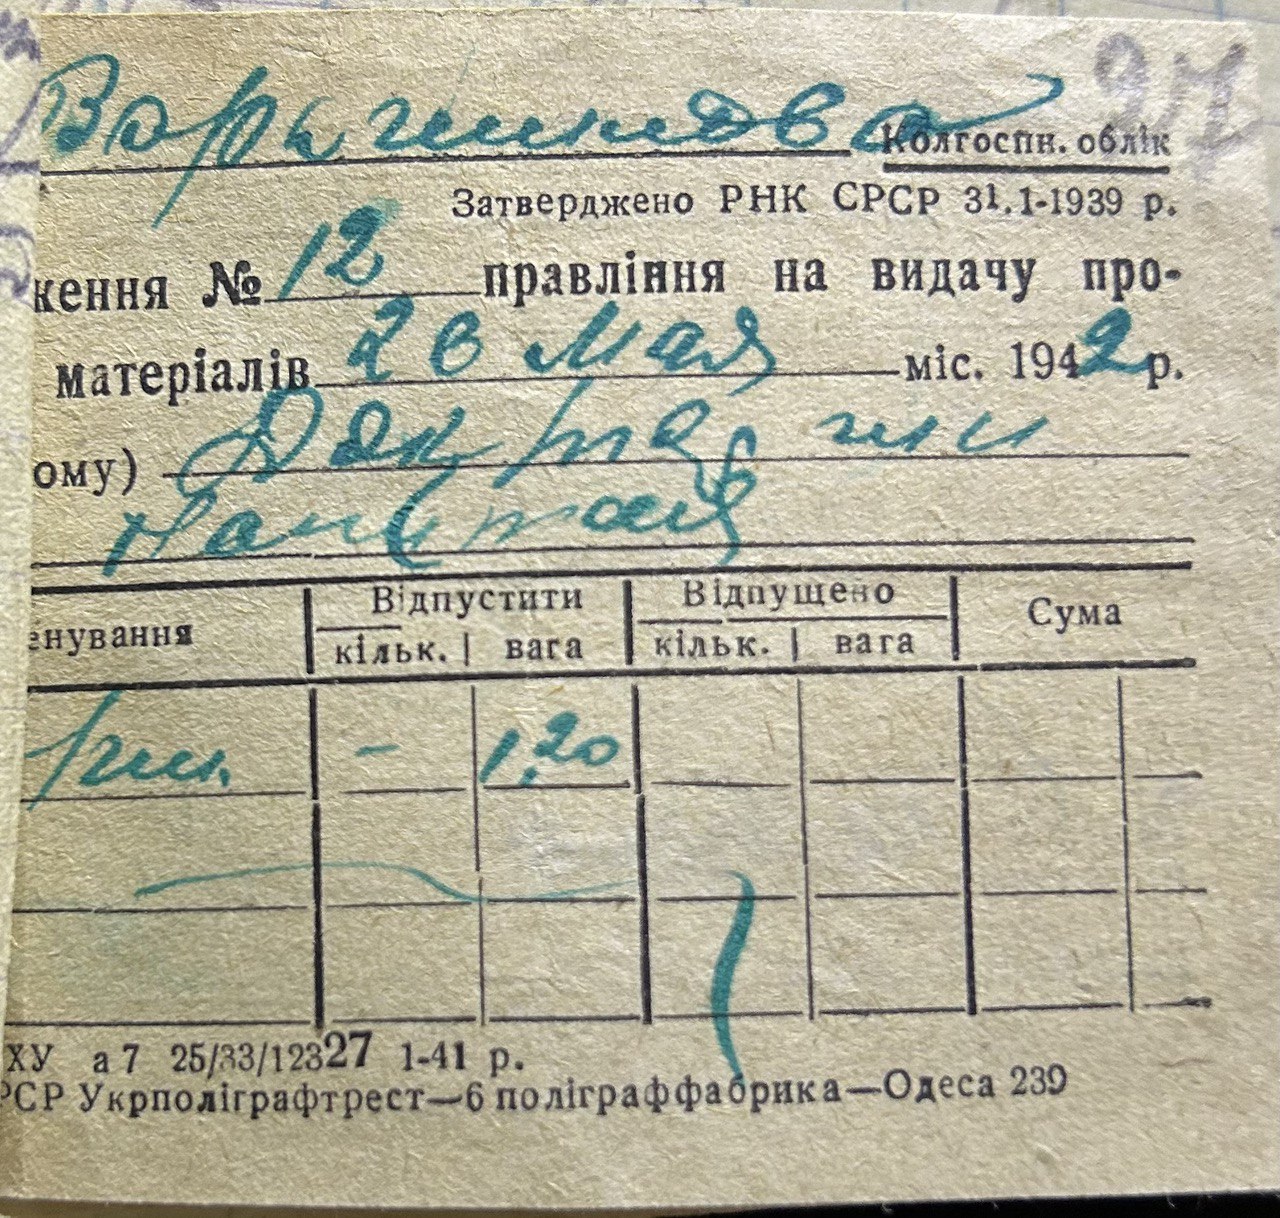 27
Колгоспн. облік
Затверджено РНК СРСР 31.1-1939 р.
ження № 12 правління на видачу про-
матеріалів 26 мая міс. 1942 р.
ому)
енування Відпустити Відпущено Сума
кільк. вага кільк. вага
- 1,20
ХУ а7 25/33/12327 1-41 р.
РСР Укрполіграфтрест—6 поліграффабрика—Одеса 239